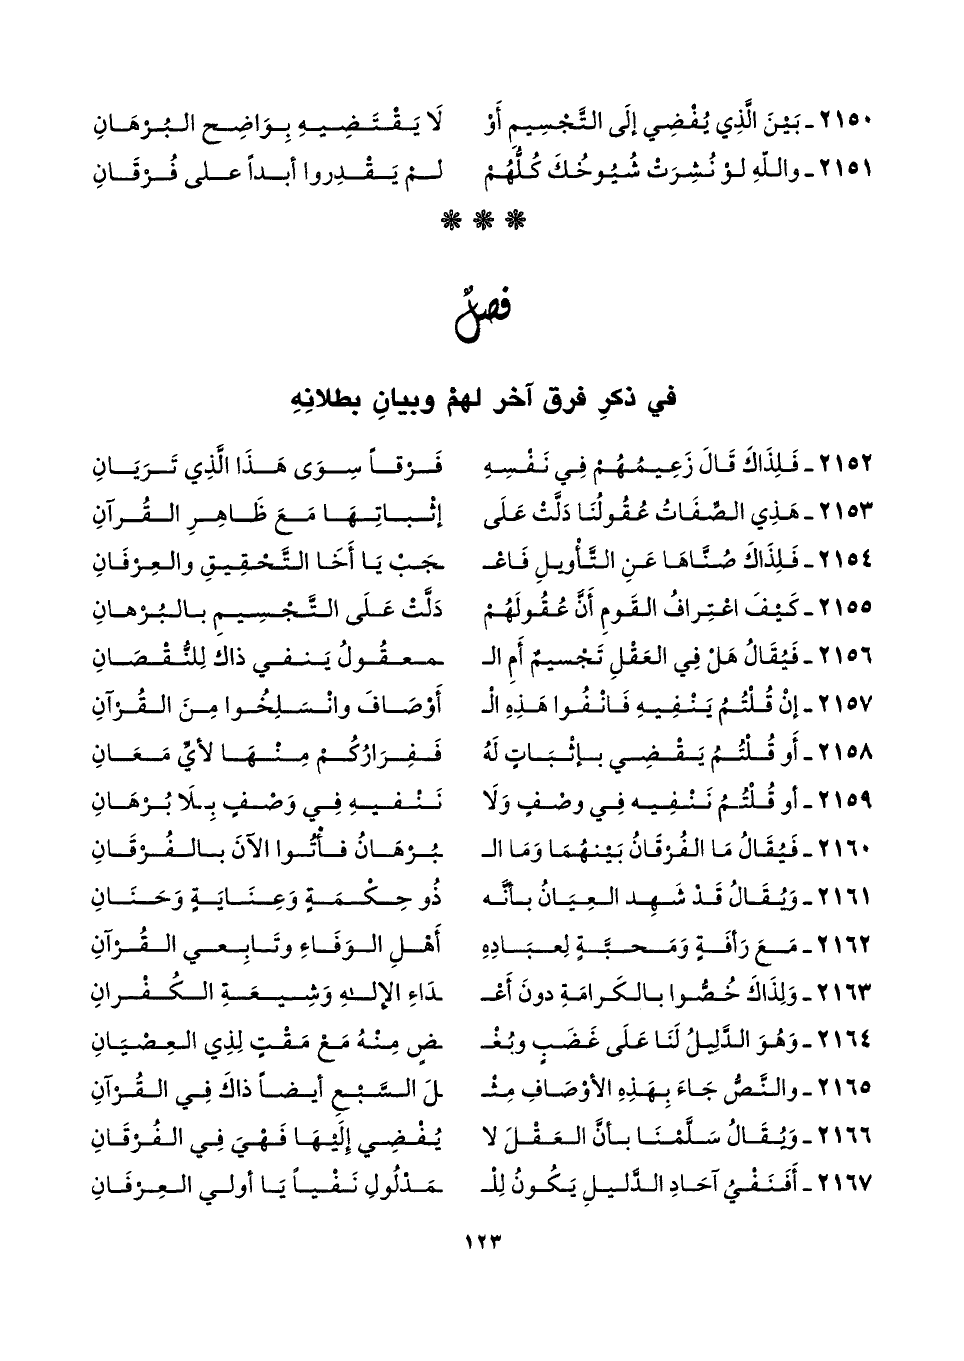 ٢١٥٠ ـ بَيْنَ الَّذِي يُفْضِي إلَى التَّجْسِيمِ أَوْ لَا يَقْتَضِيهِ بِوَاضِحِ البُرْهَانِ
٢١٥١ ـ واللّهِ لوْ نُشِرَتْ شُيُوخُكَ كُلُّهُمْ لمْ يَقْدِروا أبداً على فُرْقَانِ
❋ ❋ ❋
فصلٌ
في ذكرِ فرق آخر لهمْ وبيانِ بطلانِهِ
٢١٥٢ ـ فَلِذَاكَ قَالَ زَعِيمُهُمْ فِي نَفْسِهِ فَرْقاً سِوَى هَذَا الَّذِي تَرَيَانِ
٢١٥٣ ـ هَذِي الصِّفَاتُ عُقُولُنَا دَلَّتْ عَلَى إثْبَاتِهَا مَعَ ظَاهِرِ القُرآنِ
٢١٥٤ ـ فَلِذَاكَ صُنَّاهَا عَنِ التَّأْوِيلِ فَاعْـ ـجَبْ يَا أَخَا التَّحْقِيقِ والعِرْفَانِ
٢١٥٥ ـ كَيْفَ اعْتِرافُ القَومِ أنَّ عُقُولَهُمْ دَلَّتْ عَلَى التَّجْسِيمِ بالبُرْهانِ
٢١٥٦ ـ فَيُقَالُ هَلْ فِي العَقْلِ تَجْسِيمٌ أمِ الـ ـمعقُولُ يَنفي ذاكَ لِلنُّقْصَانِ
٢١٥٧ ـ إنْ قُلْتُمُ يَنْفِيهِ فَانْفُوا هَذِهِ الْـ أَوْصَافَ وانْسَلِخُوا مِنَ القُرْآنِ
٢١٥٨ ـ أَو قُلْتُمُ يَقْضِي بإثْبَاتٍ لَهُ فَفِرَارُكُمْ مِنْهَا لأيِّ مَعَانِ
٢١٥٩ ـ أو قُلْتُمُ نَنْفِيهِ فِي وصْفٍ وَلَا نَنْفِيهِ فِي وَصْفٍ بِلَا بُرْهَانِ
٢١٦٠ ـ فَيُقَالُ مَا الفُرْقَانُ بَيْنَهُمَا وَمَا الـ ـبُرْهَانُ فأْتُوا الآنَ بالفُرْقَانِ
٢١٦١ ـ وَيُقَالُ قَدْ شَهِدَ العِيَانُ بأنَّه ذُو حِكْمَةٍ وَعِنَايَةٍ وَحَنَانِ
٢١٦٢ ـ مَعَ رَأفَةٍ وَمَحبَّةٍ لِعبَادِهِ أَهْلِ الوَفَاءِ وتَابِعي القُرْآنِ
٢١٦٣ ـ وَلِذَاكَ خُصُّوا بالكَرامَةِ دونَ أعْـ ـدَاءِ الإلهِ وَشِيعَةِ الكُفْرانِ
٢١٦٤ ـ وَهُوَ الدَّلِيلُ لَنَا عَلَى غَضَبٍ وبُغْـ ـضٍ مِنْهُ مَعْ مَقْتٍ لِذِي العِصْيَانِ
٢١٦٥ ـ والنَّصُّ جَاءَ بِهَذِهِ الأوْصَافِ مِثْـ ـلَ السَّبْعِ أيضاً ذاكَ فِي القُرْآنِ
٢١٦٦ ـ وَيُقَالُ سَلَّمْنَا بأنَّ العَقْلَ لا يُفْضِي إِلَيْهَا فَهْيَ فِي الفُرْقَانِ
٢١٦٧ ـ أَفَنَفْيُ آحَادِ الدَّلِيلِ يَكُونُ لِلْـ ـمَدْلُولِ نَفْياً يَا أولي العِرْفَانِ
١٢٣